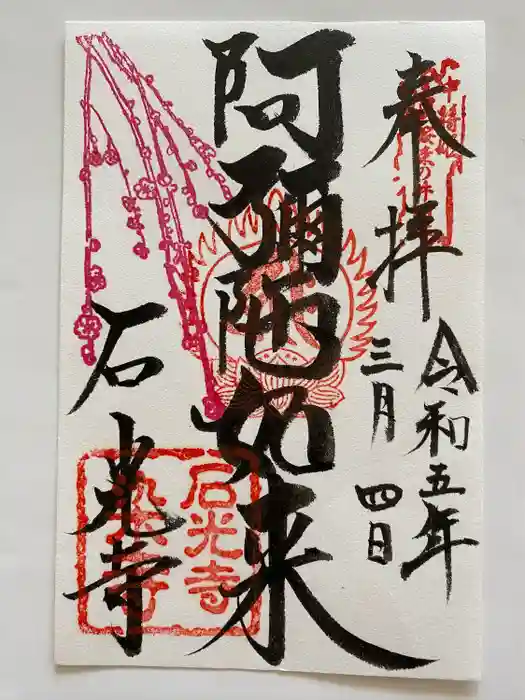 奉拝
令和五年
三月
四日
阿彌陀如来
石光寺
石光寺
染寺